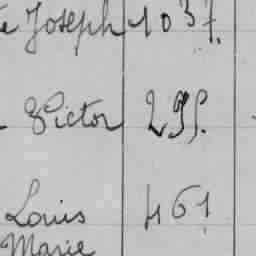 Joseph 1037.
Victor 299.
Louis 461
Marie